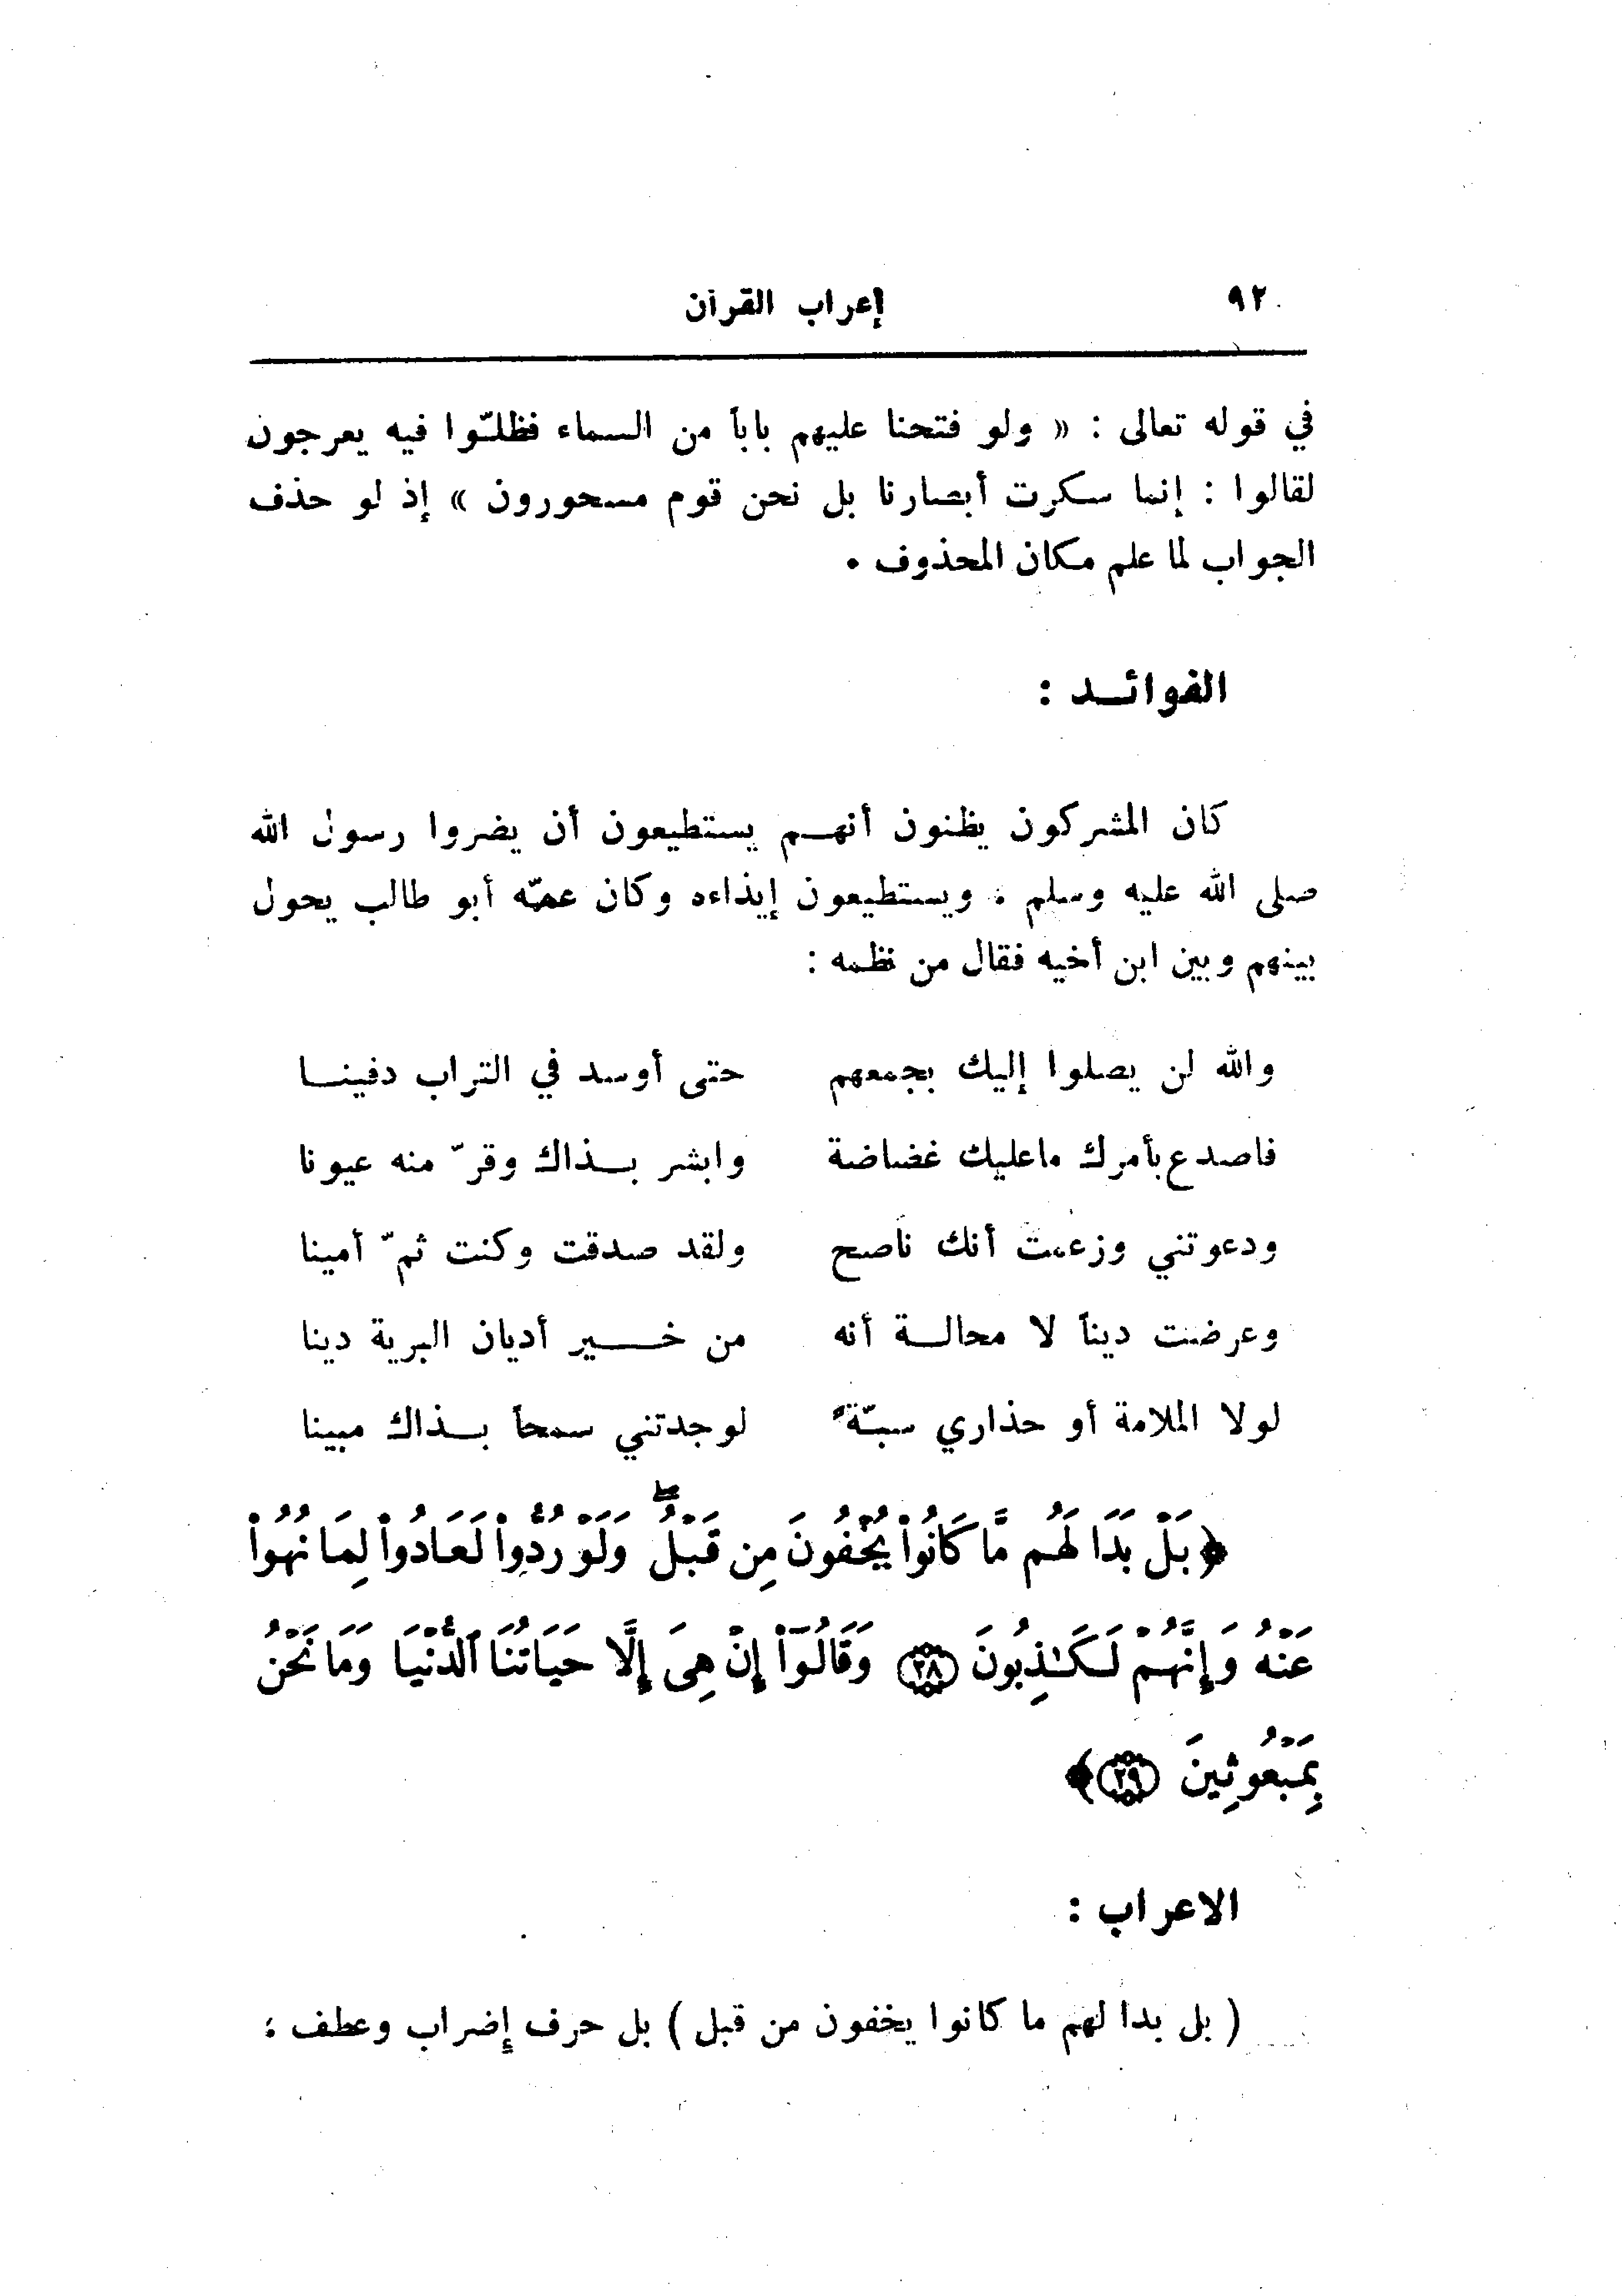 ٩٢ إعراب القرآن
في قوله تعالى : « ولو فتحنا عليهم باباً من السماء فظلّوا فيه يعرجون
لقالوا : إنما سكرت أبصارنا بل نحن قوم مسحورون » إذ لو حذف
الجواب لما علم مكان المحذوف .
الفوائـــد :
كان المشركون يظنون أنهـــم يستطيعون أن يضروا رسول الله
صلى الله عليه وسلم ، ويستطيعون إيذاءه وكان عمّه أبو طالب يحول
بينهم وبين ابن أخيه فقال من نظمه :
والله لن يصلوا إليك بجمعهم حتى أوسد في التراب دفينـــا
فاصدع بأمرك ماعليك غضاضة وابشر بـــذاك وقرّ منه عيونا
ودعوتني وزعمت أنك ناصح ولقد صدقت وكنت ثمّ أمينا
وعرضت ديناً لا محالـــة أنه من خـــــير أديان البرية دينا
لولا الملامة أو حذاري سبّةً لوجدتني سمحاً بـــذاك مبينا
﴿ بَلْ بَدَا لَهُم مَّا كَانُواْ يُخْفُونَ مِن قَبْلُ ۖ وَلَوْ رُدُّواْ لَعَادُواْ لِمَا نُهُواْ
عَنْهُ وَإِنَّهُمْ لَكَـٰذِبُونَ ﴿٢٨﴾ وَقَالُوٓاْ إِنْ هِىَ إِلَّا حَيَاتُنَا ٱلدُّنْيَا وَمَا نَحْنُ
بِمَبْعُوثِينَ ﴿٢٩﴾ ﴾
الاعراب :
( بل بدا لهم ما كانوا يخفون من قبل ) بل حرف إضراب وعطف ؛